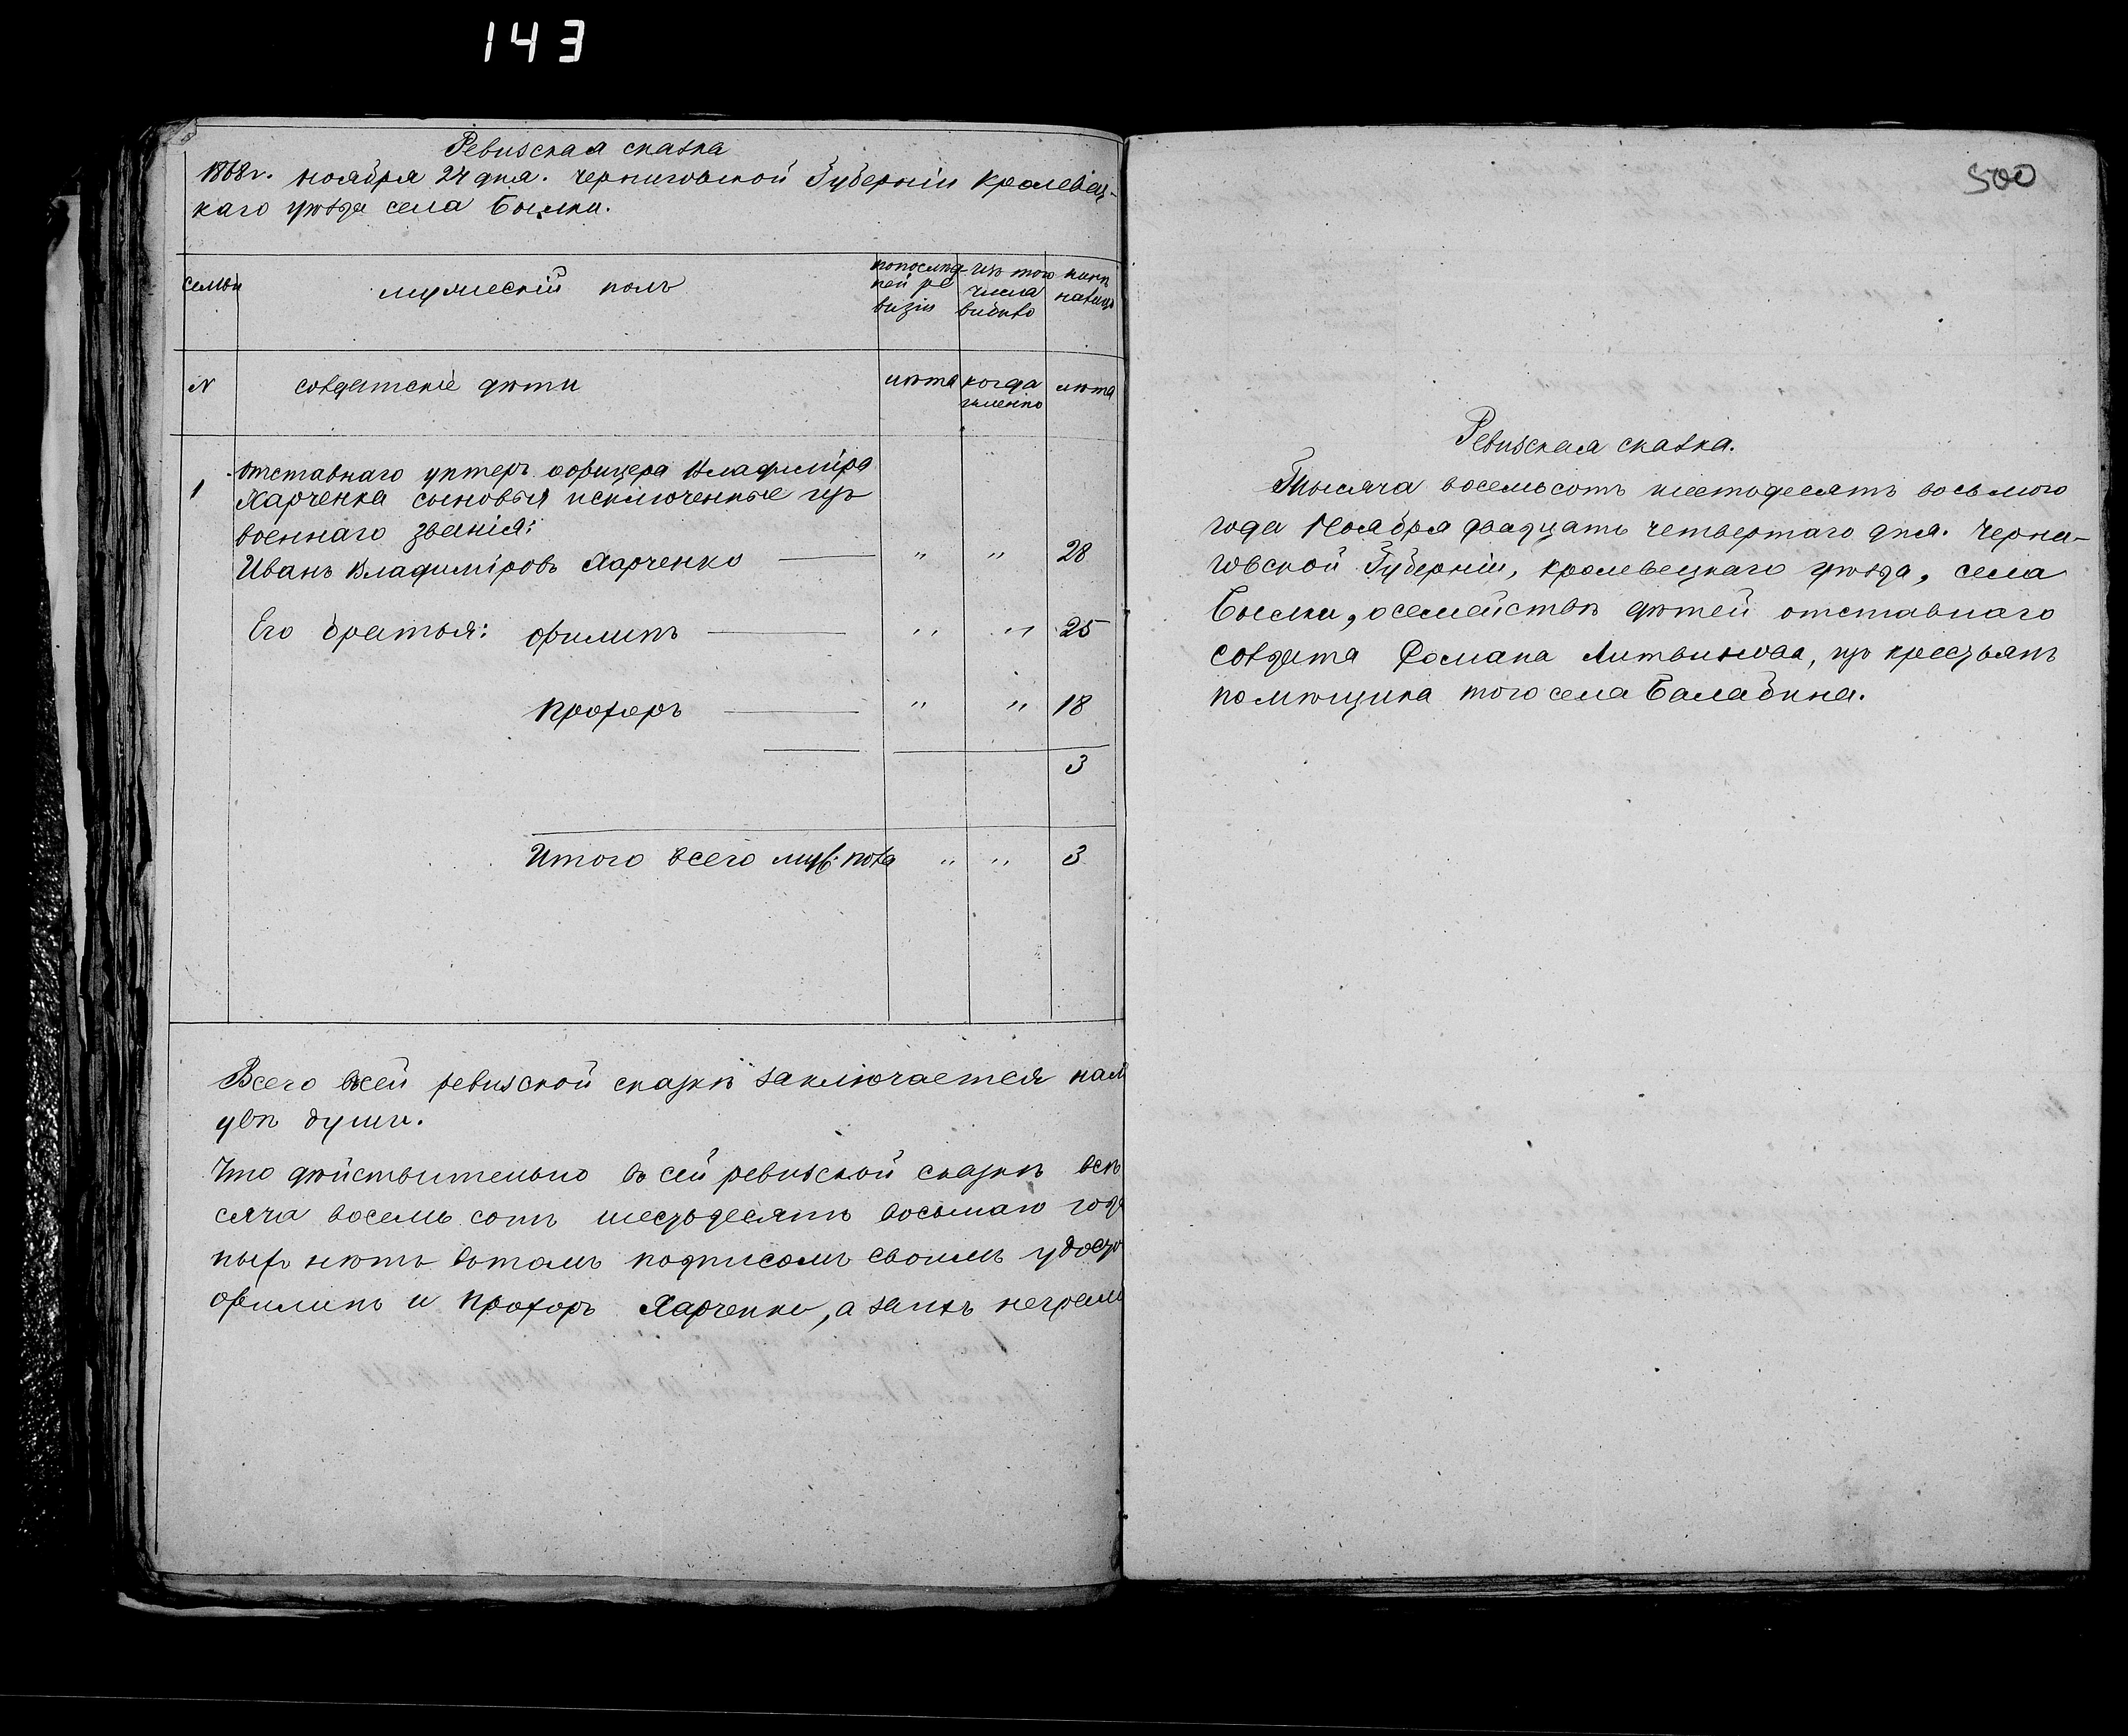 143
Ревизская сказка
1868 г. ноября 24 дня. Черниговской Губерніи Кролевец-
каго уѣзда села Быстки.
семьи
мужескій полъ
попослѣд-
ней ре
визіи
изъ того
числа
выбыло
нынѣ
налицо
N
солдатскіе дѣти
лѣта
когда
именно
лѣта
1
отставнаго унтеръ офицера Владиміра
Харченка сыновья исключенные изъ
военнаго званія:
Иванъ Владиміровъ Харченко — " " 28
Его братья: Филипъ — " " 25
Прохоръ — " " 18
3
Итого всего муж: пола " " 3
Всего всей ревизской сказкѣ заключается нал
двѣ души.
Что дѣйствительно въ сей ревизской сказкѣ всѣ
сяча восемь сотъ шестьдесятъ восьмаго год
ныхъ нѣтъ вътомъ подписомъ своимъ удосто
Филипъ и Прохоръ Харченко, а заихъ неграм
500
Ревизская сказка.
Тысяча восемьсотъ шестодесятъ восьмого
года Ноября двадцать четвертаго дня. Черни-
говской Губерніи, Кролевецкаго уѣзда, села
осемействѣ дѣтей отставнаго
солдата Романа Литвинова, изъ крестьянъ
помѣщика того села Балабина.